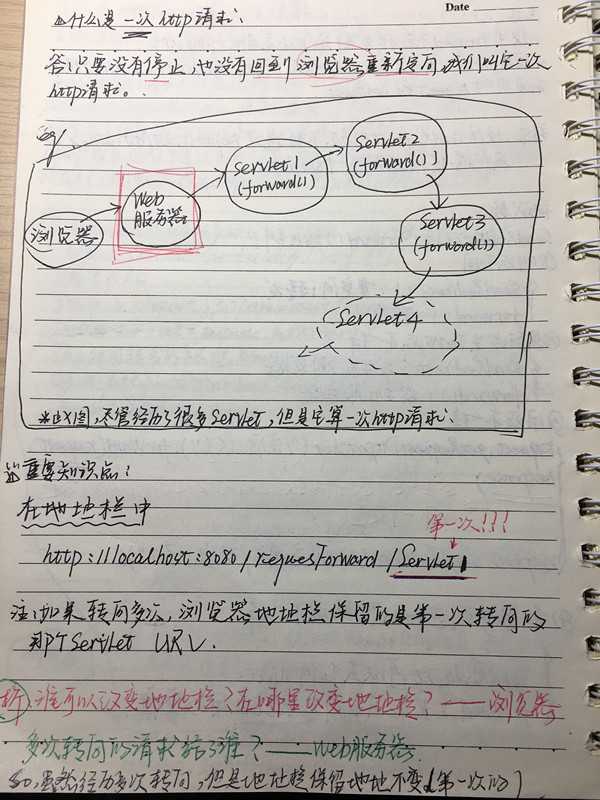 Date
④什么是一次http请求.
答:只要没有停止,也没有回到浏览器重新定向,我们叫它一次
http请求。
eg/
浏览器
Web
服务器
Servlet1
(forward())
Servlet2
(forward())
Servlet3
(forward())
Servlet4
*此图,尽管经历了很多Servlet,但是它算一次http请求.
重要知识点:
在地址栏中
第一次!!!
http://localhost:8080/requesForward/Servlet1
注:如果转向多次,浏览器地址栏保留的是第一次转向的
那个Servlet URL.
析.谁可以改变地址栏?在哪里改变地址栏?——浏览器
多次转向的请求给了谁?——web服务器.
So,虽然经历多次转向,但是地址栏保留地址不变(第一次的)